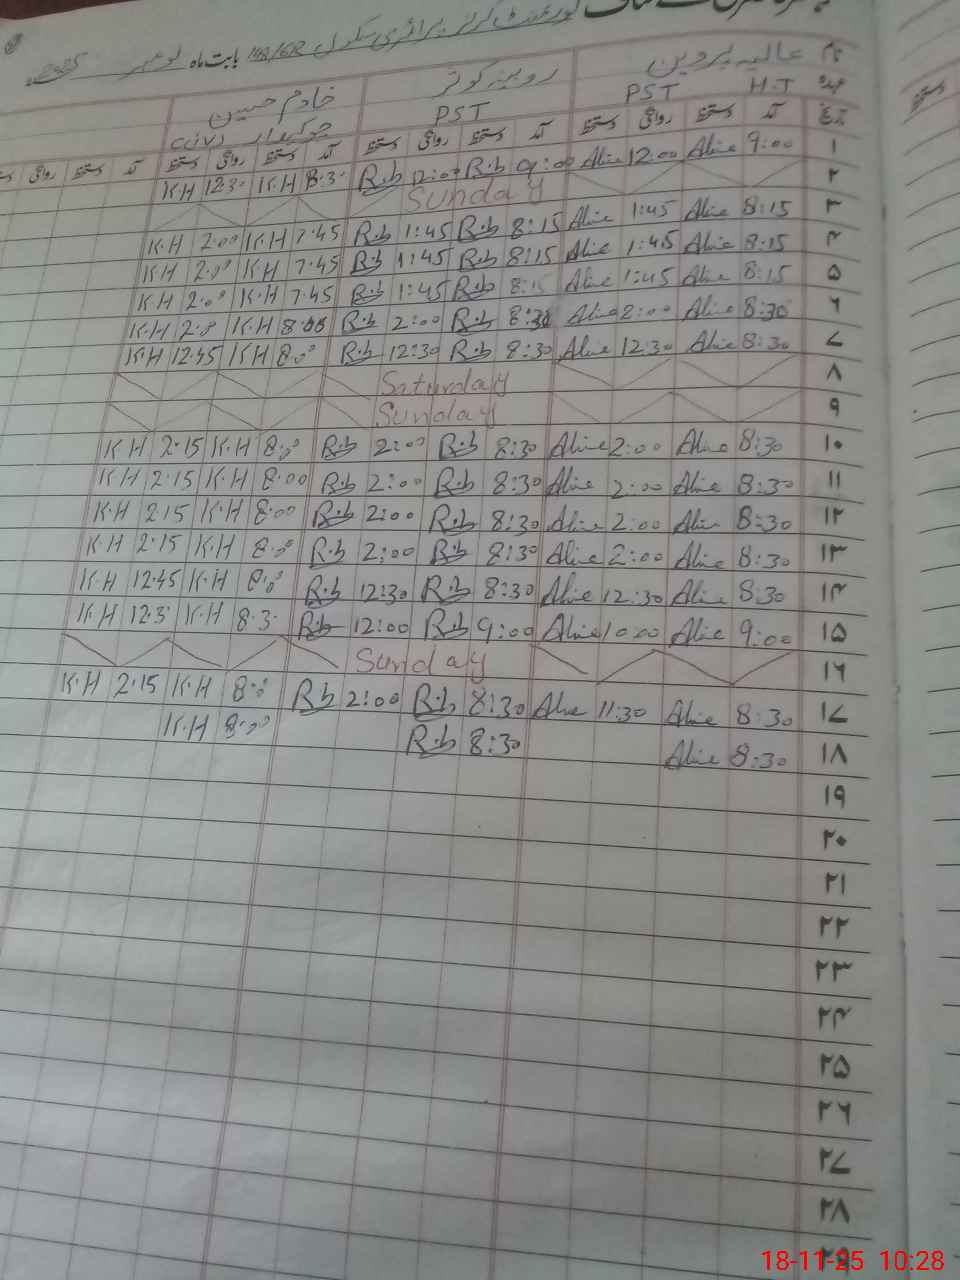 گورنمنٹ گرلز پرائمری سکول 148/6R بابت ماہ نومبر 2025
نام عالیہ پروین روبینہ کوثر خادم حسین
عہدہ H.T PST PST چوکیدار
تاریخ آمد دستخط روانگی دستخط آمد دستخط روانگی دستخط آمد دستخط روانگی دستخط آمد دستخط روانگی دستخط
۱ 9:00 Alia 12:00 Alia 9:00 R.b 12:00 R.b 8:30 K.H 12:30 K.H
۲ Sunday
۳ 8:15 Alia 1:45 Alia 8:15 R.b 1:45 R.b 7:45 K.H 2:00 K.H
۴ 8:15 Alia 1:45 Alia 8:15 R.b 1:45 R.b 7:45 K.H 2:00 K.H
۵ 8:15 Alia 1:45 Alia 8:15 R.b 1:45 R.b 7.45 K.H 2:00 K.H
۶ 8:30 Alia 2:00 Alia 8:30 R.b 2:00 R.b 8:00 K.H 2:00 K.H
۷ 8:30 Alia 12:30 Alia 8:30 R.b 12:30 R.b 8:00 K.H 12:45 K.H
۸ Saturday
۹ Sunday
۱۰ 8:30 Alia 2:00 Alia 8:30 R.b 2:00 R.b 8:00 K.H 2:15 K.H
۱۱ 8:30 Alia 2:00 Alia 8:30 R.b 2:00 R.b 8:00 K.H 2:15 K.H
۱۲ 8:30 Alia 2:00 Alia 8:30 R.b 2:00 R.b 8:00 K.H 2:15 K.H
۱۳ 8:30 Alia 2:00 Alia 8:30 R.b 2:00 R.b 8:00 K.H 2:15 K.H
۱۴ 8:30 Alia 12:30 Alia 8:30 R.b 12:30 R.b 8:00 K.H 12:45 K.H
۱۵ 9:00 Alia Alia 9:00 R.b 12:00 R.b 8:30 K.H 12:30 K.H
۱۶ Sunday
۱۷ 8:30 Alia 11:30 Alia 8:30 R.b 2:00 R.b 8:00 K.H 2:15 K.H
۱۸ 8:30 Alia 8:30 R.b 8:00 K.H
۱۹
۲۰
۲۱
۲۲
۲۳
۲۴
۲۵
۲۶
۲۷
۲۸
۲۹
18-11-25 10:28